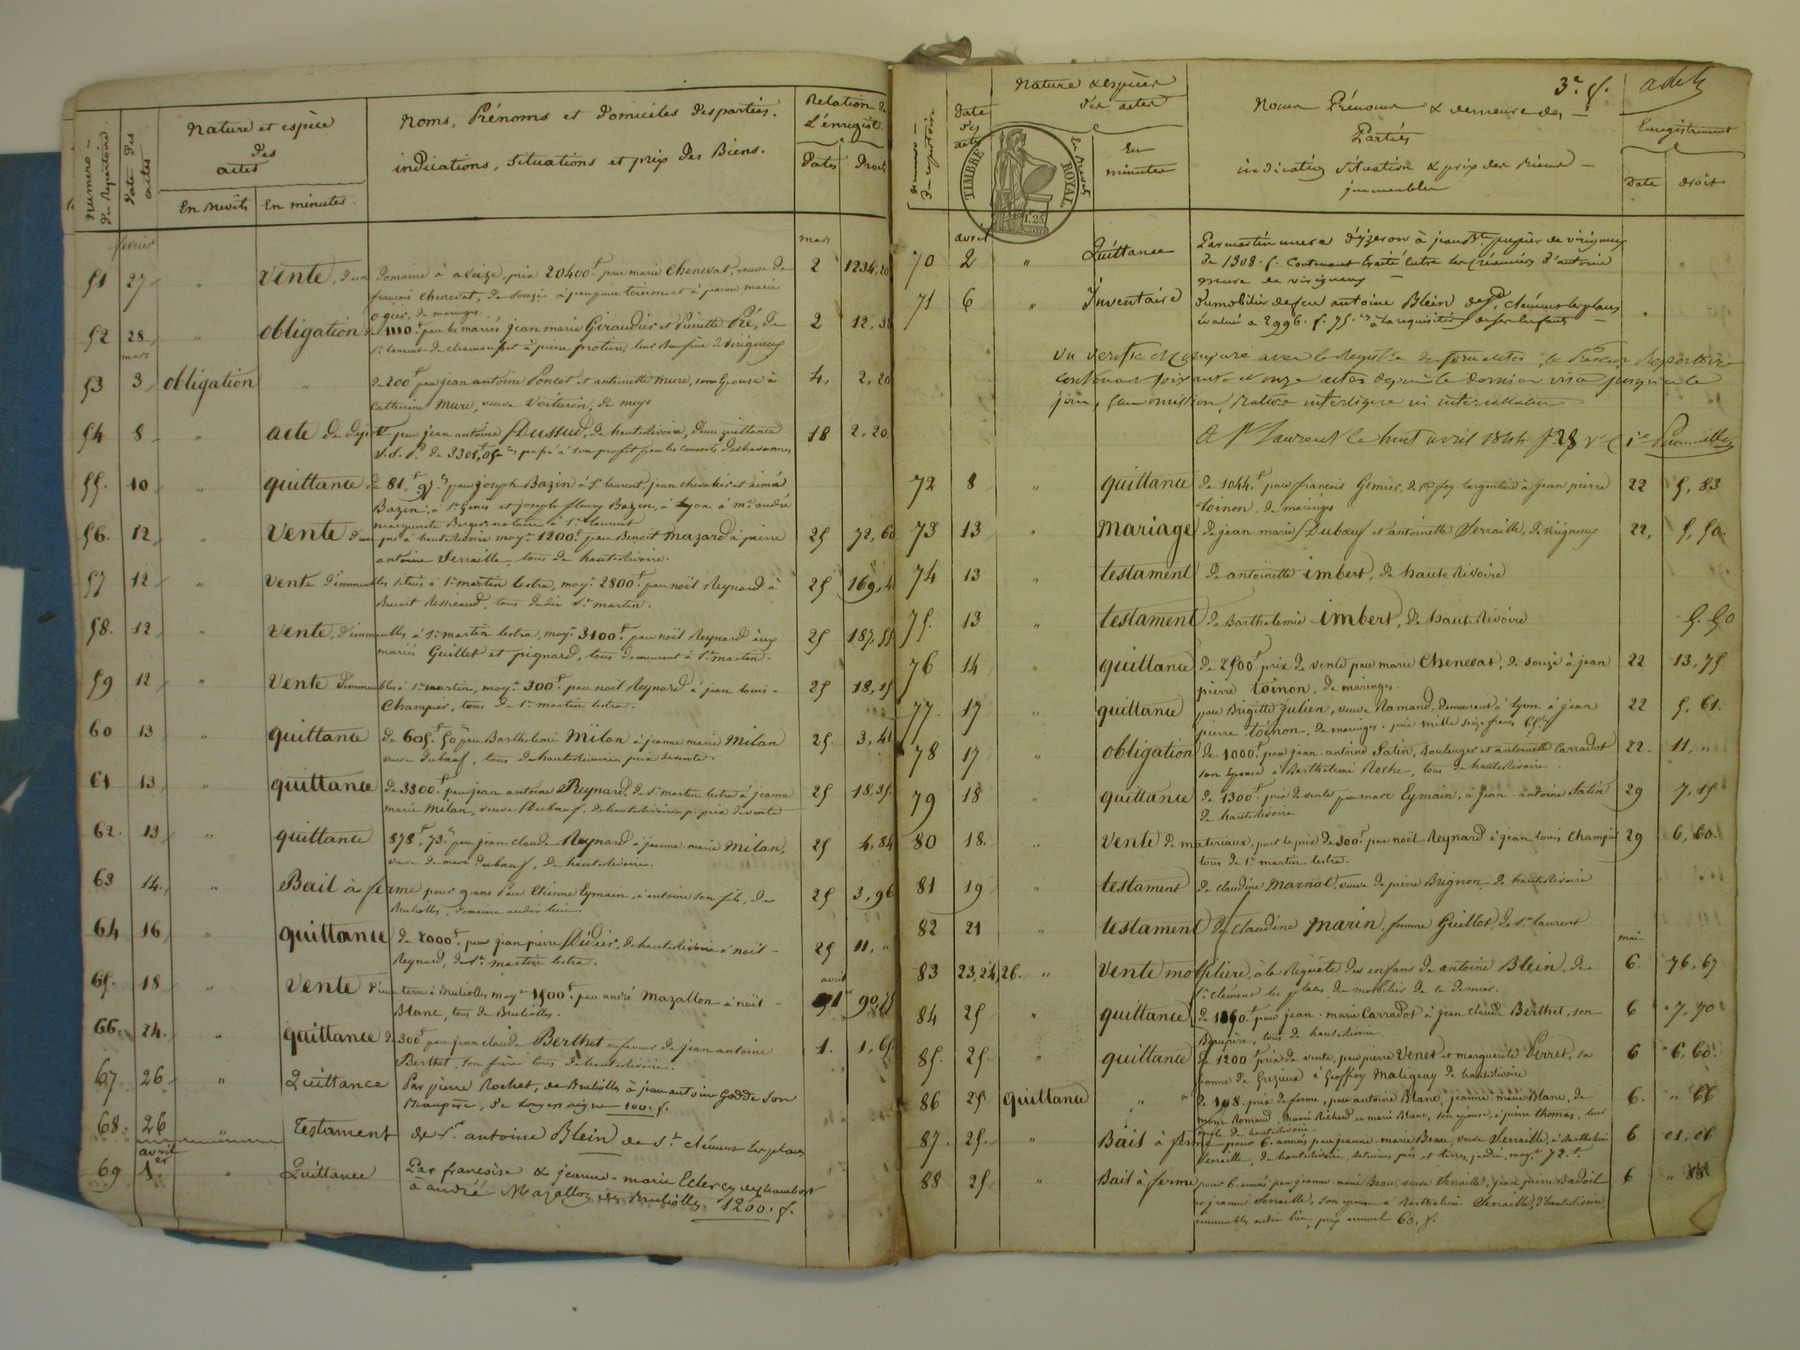 Numéros du Répertoire
Date des actes
Nature et espèce des actes
En brevêts
En minutes
Noms, Prénoms et domiciles des parties.
indications, situations et prix des Biens.
Relation de l'énregist.
Dates
Droits
février
mars
51 27 " Vente, d'un domaine à aveize, prix 20400f. par marie Chenevat, veuve de 2 1234,20
françois Chenevat, de Souzi à jean pierre toinon et à jeanne marie
ogier, de maringes.
52 28 " obligation de 1110f. par les mariés jean marie Giraudier et Pierrette Pré, de 2 12,
St laurent de chamousset à pierre proton, leur Beaufrère de virigneux
mars
53 3 obligation " de 200f. par jean antoine Poncet et antoinette Mure, son Epouse à 4. 2,20
Catherine Mure, veuve Voiturin, de meys
54 8 " acte de dépôt par jean antoine Dussud, de haute Rivoire, d'une quittance 18 2,20
55. 10 " quittance de 81f. par joseph Bazin à St laurent, jean chevalier et aimé
Bazin, à St Genis et joseph fleury Bazin, à Lyon à me andré
marguerite Berger notaire à St laurent
56. 12 " Vente d'un pré à haute Rivoire moyt 1200f. par Benoit Mazard à pierre 25 72,60
antoine Serraille, tous de haute Rivoire.
57 12 " Vente d'immeubles situés à St martin lestra, moyt 2800f. par noël Reynard à 25 169,4
Benoit Ressicaud, tous dudit St martin.
58. 12 " Vente, d'immeubles à St martin lestra, moyt 3100f. par noël Reynard aux 25 187,55
mariés Guillet et pignard, tous demeurant à St martin.
59 12 " Vente d'immeubles à St martin, moyt 300f. par noël Reynard à jean louis 25 18,15
Champier, tous de St martin lestra.
60 13 " quittance de 605f. 50c par Barthelemi Milan à jeanne marie Milan 25. 3,41
veuve Dubœuf, tous de haute Rivoire, prix de vente.
61 13 " quittance de 3300f. par jean antoine Reynard, de St martin lestra à jeanne 25 18,35
marie Milan, veuve Dubœuf, de haute Rivoire p. prix de vente
62. 13 " quittance 878f. 73c par jean claude Reynard à jeanne marie Milan, 25 4,84
veuve de Dubœuf, de haute Rivoire.
63 14. " Bail à ferme pour 9 ans Par Etienne Eymain, à antoine son fils, de 25 3,96
Brullioles, domaine audit lieu.
64 16 " quittance de 2000f. par jean pierre Didier, de haute Rivoire à noël 25 11, "
Reynard, de St martin lestra.
avril
65. 18 " Vente d'une terre à Brullioles moyt 1500f. par andré Mazallon à noël 1 90,75
Blanc, tous de Brullioles.
66. 24. " quittance de 300f. par jean claude Berthet en faveur de jean antoine 1. 1,65
Berthet, son frère tous de haute Rivoire.
67 26 " Quittance Par pierre Rochet, de Brullioles à jean antoine Godde son
Beaupère, de 100. f.
68. 26 " Testament de Sr antoine Blein de St clément les places
avril
69 1er " Quittance Par françoise & jeanne-marie Eclercy
à andré Mazallon des Brullioles. 1200. f.
Numéros du répertoire
Date des actes
Nature & espèce des actes
En Brevets
En minutes
TIMBRE ROYAL
1.25
Noms Prénoms & demeure des Parties
indication situation & prix des Biens immeubles
3e f.
Enregistrement
Date
droit
avril
70 2 " Quittance Par martin mure d'yzeron à jean Bte pupier de virigneux
de 1308. f. Contenant traité entre les créanciers d'antoine
mure de virigneux
71 6 " Inventaire Du mobilier de feu antoine Blein de St clément les places
évalué à 2996. f. 75. c à la réquisition de ses enfants
Vu vérifié et comparé avec le Registre de formalités, le présent Répertoire
contenant soixante et onze actes depuis le dernier visa jusqu'à ce
jour, sans omission, rature interligne ni intercallation
A St Laurent le huit avril 1844
72 8 " quittance de 1044f. par françois Gimier, de Ste foy l'argentière à jean pierre 22 5,83
toinon, de maringes
73 13 " Mariage de jean marie Dubœuf et antoinette Serraille, de virigneux 22, 5,50.
74 13 " testament de antoinette imbert, de haute Rivoire
75. 13 " testament de Barthelemie imbert, de haute Rivoire 5.50
76 14 " quittance de 2500f. prix de vente par marie Chenevat, de Souzi à jean 22 13,75
pierre toinon, de maringes.
77. 17 " quittance par Brigitte Julien, veuve Ramand, demeurant à Lyon à jean 22 5,61.
pierre toinon, de maringes. prix mille seize francs 65c
78 17 " obligation de 1000f. par jean antoine Satin, Boulanger et antoinette Carradot 22. 11, "
son épouse à Barthelemi Roche, tous de haute Rivoire.
79 18 " quittance de 1300f. prix de vente par marc Eymain, à jean antoine Satin 29 7,15
de haute Rivoire
80 18. " Vente de materiaux, pour le prix de 300f. par noël Reynard à jean louis Champier 29 6,60.
tous de St martin lestra.
81 19 " testament de claudine Marnat, veuve de pierre Brignon de haute Rivoire
82 21 " testament de claudine Marin, femme Guillot, de St laurent
mai
83 23,24,26. " Vente mobilière, à la Requête des enfans de antoine Blein, de 6. 76,67
St clément les places, du mobilier de ce dernier.
84 25 " quittance par jean marie Carradot à jean claude Berthet, son 6 7,70
Beaupère, tous de haute Rivoire.
85. 25. " quittance de 1200f. prix de vente, par pierre Venet et marguerite Perret, sa 6 6,60.
femme de Grezieux à Geoffroy Maligeay de haute Rivoire
86 25 quittance " " de 108. prix de ferme, par antoine Blanc, jeanne marie Blanc, de 6. " 66
Romand, Marie Richard et marie Blanc, son épouse, à pierre thomas, leur
oncle de haute Rivoire.
87. 25. " Bail à ferme pour 6 années par jeanne marie Beau, veuve Serraille, à Barthelemi 6 01,06
Serraille, de haute Rivoire, batimens prés et terres, jardin, moyt 72.f
88 25 " Bail à ferme pour 6 années, par jeanne marie Beau, veuve Serraille, jean pierre Badoil 6 " 88
et jeanne Serraille, son épouse à Barthelemi Serraille, d'haute Rivoire,
immeubles audit lieu, prix annuel 60. f.